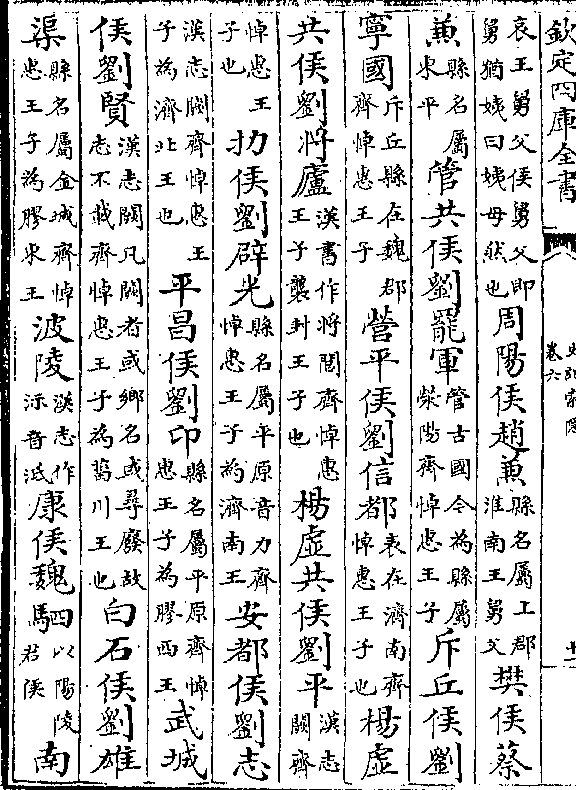 欽定四庫全書
史記索隱
卷六
哀王舅父侯舅父即舅猶姨曰姨母然也周陽侯趙蒹縣名屬上郡淮南王舅父樊侯蔡
蒹縣名屬東平管共侯劉罷軍管古國今為縣屬滎陽齊悼惠王子斥丘侯劉
寧國斥丘縣在魏郡齊悼惠王子營平侯劉信都表在濟南齊悼惠王子也楊虛
共侯劉將廬漢書作將閭齊悼惠王子襲封王子也楊虛共侯劉平漢志闕齊
悼惠王子也扐侯劉辟光縣名屬平原音力齊悼惠王子為濟南王安都侯劉志
漢志闕齊悼惠王子為濟北王也平昌侯劉卬縣名屬平原齊悼惠王子為膠西王武城
侯劉賢漢志闕凡闕者或鄉名或尋廢故志不載齊悼惠王子為菑川王也白石侯劉雄
渠縣名屬金城齊悼惠王子為膠東王波陵漢志作沶音泜康侯魏駟以陽陵君侯南